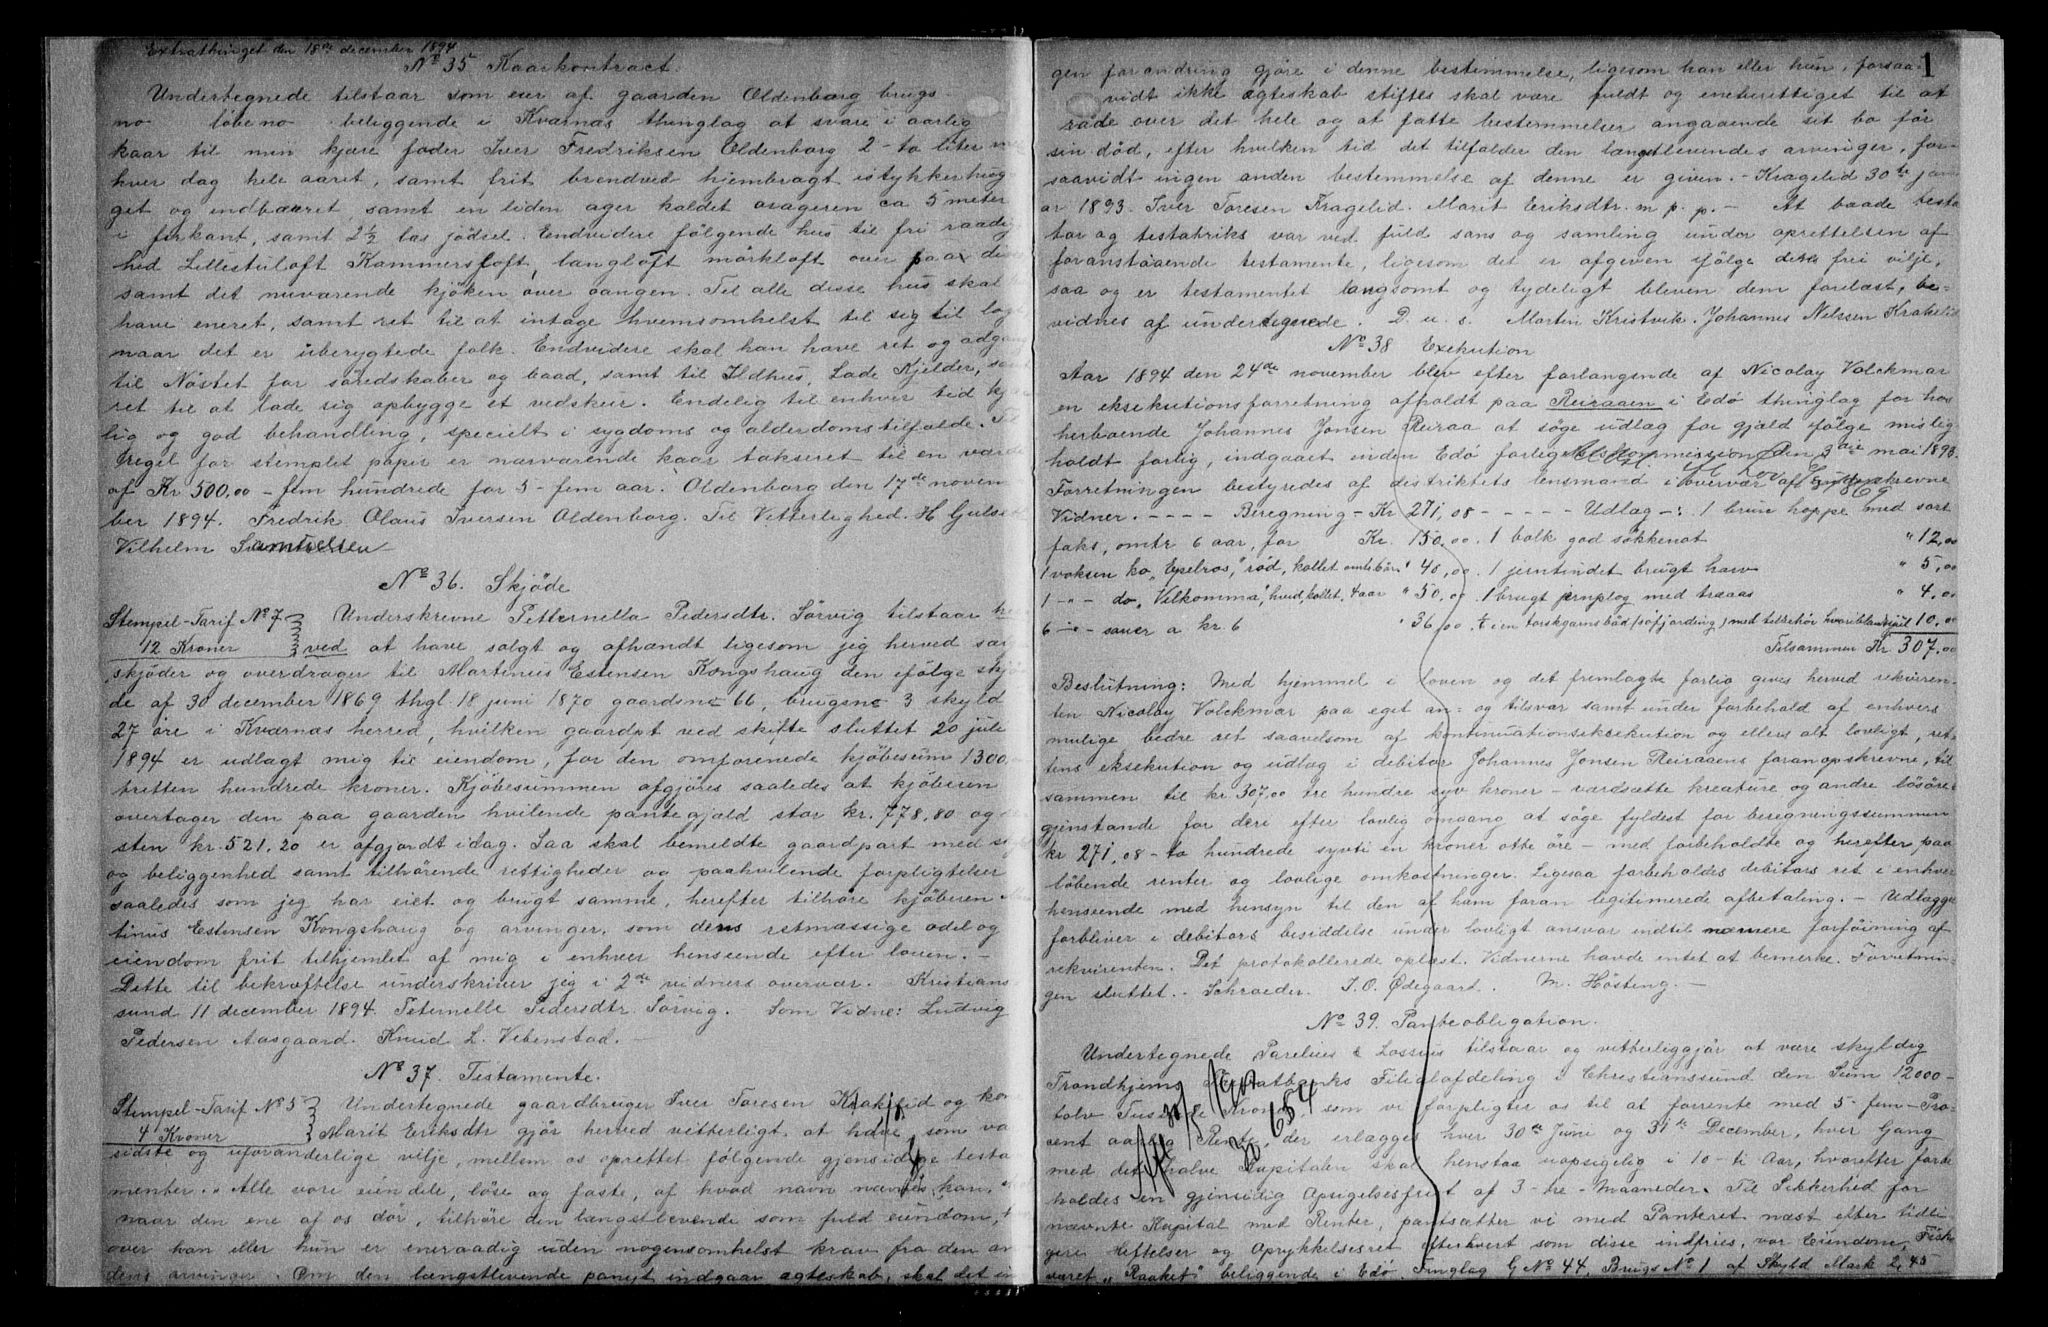 Extrathinget den 18de december 1894
No 35 Kaarkontract.
Undertegnede tilstaar som eier af gaarden Oldenborg brugs-
no løbeno beliggende i Kværnæs thinglag at svare i aarlig
kaar til min kjære fader Iver Fredriksen Oldenborg 2 - to liter
hver dag hele aaret, samt frit brendved hjembragt istykkerhug-
get og indbaaret, samt en liden ager kaldet ca 5 meter
i firkant, samt 2½ læs jødsel. Endvidere følgende hus til fri raadig
hed Lillestuloft Kammersloft, langloft mørkloft over
samt det nuværende kjøken over gangen. Til alle disse hus skal
have eneret, samt ret til at intage hvemsomhelst til sig til
naar det er uberygtede folk. Endvidere skal han have ret og adgang
til Nøstet for søredskaber og baad, samt til Ildhus, Lade Kjelder,
ret til at lade sig opbygge et vedskeur. Endelig til enhver tid
lig og god behandling, specielt i sygdoms og alderdomstilfælde.
regel for stemplet papir er nærværende kaar takseret til en værdi
af Kr 500,00 - fem hundrede for 5 - fem aar. Oldenborg den 17de novem
ber 1894. Fredrik Olaus Iversen Oldenborg. Til Vitterlighed. H Gulset
Vilhelm Samuelsen
No 36. Skjøde
Stempel-Tarif No 7 Underskrevne Petternella Pedersdtr. Sørvig tilstaar
12 Kroner ved at have solgt og afhændt ligesom jeg herved
skjøder og overdrager til Martinus Estensen Kongshaug den ifølge skjø
de af 30 december 1869 thgl. 18 juni 1870 gaardsno 66, brugsno 3 skyld
27 øre i Kværnæs herred, hvilken gaardpt ved skifte sluttet 20 juli
1894 er udlagt mig til eiendom, for den omforenede kjøbesum 1300,
tretten hundrede kroner. Kjøbesummen afgjøres saaledes at kjøberen
overtager den paa gaarden hvilende pantegjæld stor kr. 778,80 og
sten kr. 521,20 er afgjordt idag. Saa skal bemeldte gaardpart med
og beliggenhed samt tilhørende rettigheder og paahvilende forpligtelser
saaledes som jeg har eiet og brugt samme, herefter tilhøre kjøberen
tinus Estensen Kongshaug og arvinger, som dens retmæssige odel og
eiendom frit tilhjemlet af mig i enhver henseende efter loven. -
Dette til bekræftelse underskriver jeg i 2de vidners overvær. - Kristians
sund 11 december 1894. Peternelle Pedersdtr. Sørvig. Som Vidne: Ludvig
Pedersen Aasgaard. Knud L. Vebenstad. -
No 37. Testamente.
Stempel-Tarif No 5 Undertegnede gaardbruger Iver Toresen Krakelid og kone
4 Kroner Marit Eriksdtr gjør herved vitterligt at have som
sidste og uforanderlige vilje, mellem os oprettet følgende gjensidige testa
menter. Alle vore eiendele, løse og faste, af hvad navn nævnes kan,
naar den ene af os dør, tilhøre den længstlevende som fuld eiendom,
over han eller hun er eneraadig uden nogensomhelst krav fra den
dens arvinger. Om den længstlevende panyt indgaar ægteskab, skal det
1
gen forandring gjøre i denne bestemmelse, ligesom han eller hun, forsaa
vidt ikke ægteskab stiftes skal være fuldt og eneberettiget til at
raade over det hele og at fatte bestemmelser angaaende sit bo før
sin død, efter hvilken tid det tilfalder den længstlevendes arvinger, for-
saavidt ingen anden bestemmelse af denne er given. - Kragelid 30te janu
ar 1893. Iver Toresen Kragelid. Marit Eriksdtr. m. p. p. - At baade testa
tor og testatriks var ved fuld sans og samling under oprettelsen af
foranstaaende testamente, ligesom det er afgeven ifølge deres frie vilje,
saa og er testamentet langsomt og tydeligt bleven dem forelæst, be-
vidnes af undertegnede. D. u. s. Martin Kristvik. Johannes Nelssen Krakelid
No 38 Exekution
Aar 1894 den 24de november blev efter forlangende af Nicolay Volckmar
en eksekutionsforretning afholdt paa Reiraaen i Edø thinglag for hos
herboende Johannes Jonsen Reiraa at søge udlæg for gjæld ifølge mislig-
holdt forlig, indgaaet inden Edø forligelseskommission den 3die mai 1893.
Forretningen bestyredes af distriktets lensmand i overvær af
Vidner. - - - - Beregning - Kr 271,08 - - - - - Udlæg -: 1 brun hoppe med sort
faks, omtr 6 aar, for Kr. 150,00. 1 bolk god søkkenot " 12,00
1 voksen ko "Epelros," rød, kollet " 40,00. 1 jerntindet brugt harv " 5,00
1 -"- do "Vilkomma", hvid, kollet, 4 aar " 50,00. 1 brugt jernplog med træaas " 4,00
6 -"- sauer a kr. 6 " 36,00. ½ i en torskgarnsbåd (søfjording) med tilbehør 10,00
Tilsammen Kr 307,00
Beslutning: Med hjemmel i loven og det fremlagte forlig gives herved rekviren-
ten Nicolay Volckmar paa eget an- og tilsvar samt under forbehold af enhvers
mulige bedre ret saavelsom af kontinuationseksekution og ellers alt lovligt, ret-
tens eksekution og udlæg i debitor Johannes Jonsen Reiraaens foranopskrevne, til
sammen til kr 307,00 tre hundre syv kroner - værdsætte kreature og andre løsøre-
gjenstande for deri efter lovlig omgang at søge fyldest for beregningssummen
kr 271,08 - to hundrede sytti en kroner otte øre - med forbeholdte og herefter paa
løbende renter og lovlige omkostninger. Ligesaa forbeholdes debitors ret i enhver
henseende med hensyn til den af ham foran legitimerede afbetaling. - Udlægget
forbliver i debitors besiddelse under lovligt ansvar indtil nærmere forføining af
rekvirenten. Det protokollerede oplæst. Vidnerne havde entet at bemerke. Forretnin-
gen sluttet. - Schrøeder. I. O. Ødegaard. M. Høsteng. -
No 39. Panteobligation.
Undertegnede Parelius & Lossius tilstaar og vitterliggjør at være skyldig
Trondhjems Privatbanks Filialafdeling i Christianssund den Sum 12000 -
tolv Tusende Kroner som vi forpligter os til at forrente med 5 - fem - Pro-
cent aarlig Rente, der erlægges hver 30te Juni og 31te December, hver Gang
med det halve. Kapitalen skal henstaa uopsigelig i 10 - ti Aar, hvorefter forbe
holdes en gjensidig Opsigelsesfrist af 3 - tre - Maaneder. Til Sikkerhed for
nævnte Kapital med Renter, pantsætter vi med Panteret næst efter tidli-
gere Heftelser og Oprykkelsesret efterhvert som disse indfries, vor Eiendom, Fiske
været "Raaket" beliggende i Edø Tinglag G No 44, Brugs No 1 af Skyld Mark 2,45